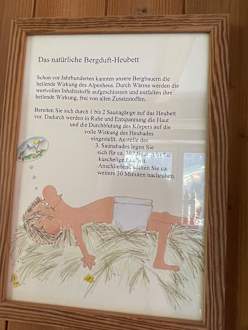 Das natürliche Bergduft-Heubett
Schon vor Jahrhunderten kannten unsere Bergbauern die
heilende Wirkung des Alpenheus. Durch Wärme werden die
wertvollen Inhaltsstoffe aufgeschlossen und entfalten ihre
heilende Wirkung, frei von allen Zusatzstoffen.
Bereiten Sie sich durch 1 bis 2 Saunagänge auf das Heubett
vor. Dadurch werden in Ruhe und Entspannung die Haut
und die Durchblutung des Körpers auf die
volle Wirkung des Heubades
eingestellt. Anstelle des
3. Saunabades legen Sie
sich für ca.
kuschelige
Anschließend können Sie ca
weitere 30 Minuten nachruhen.